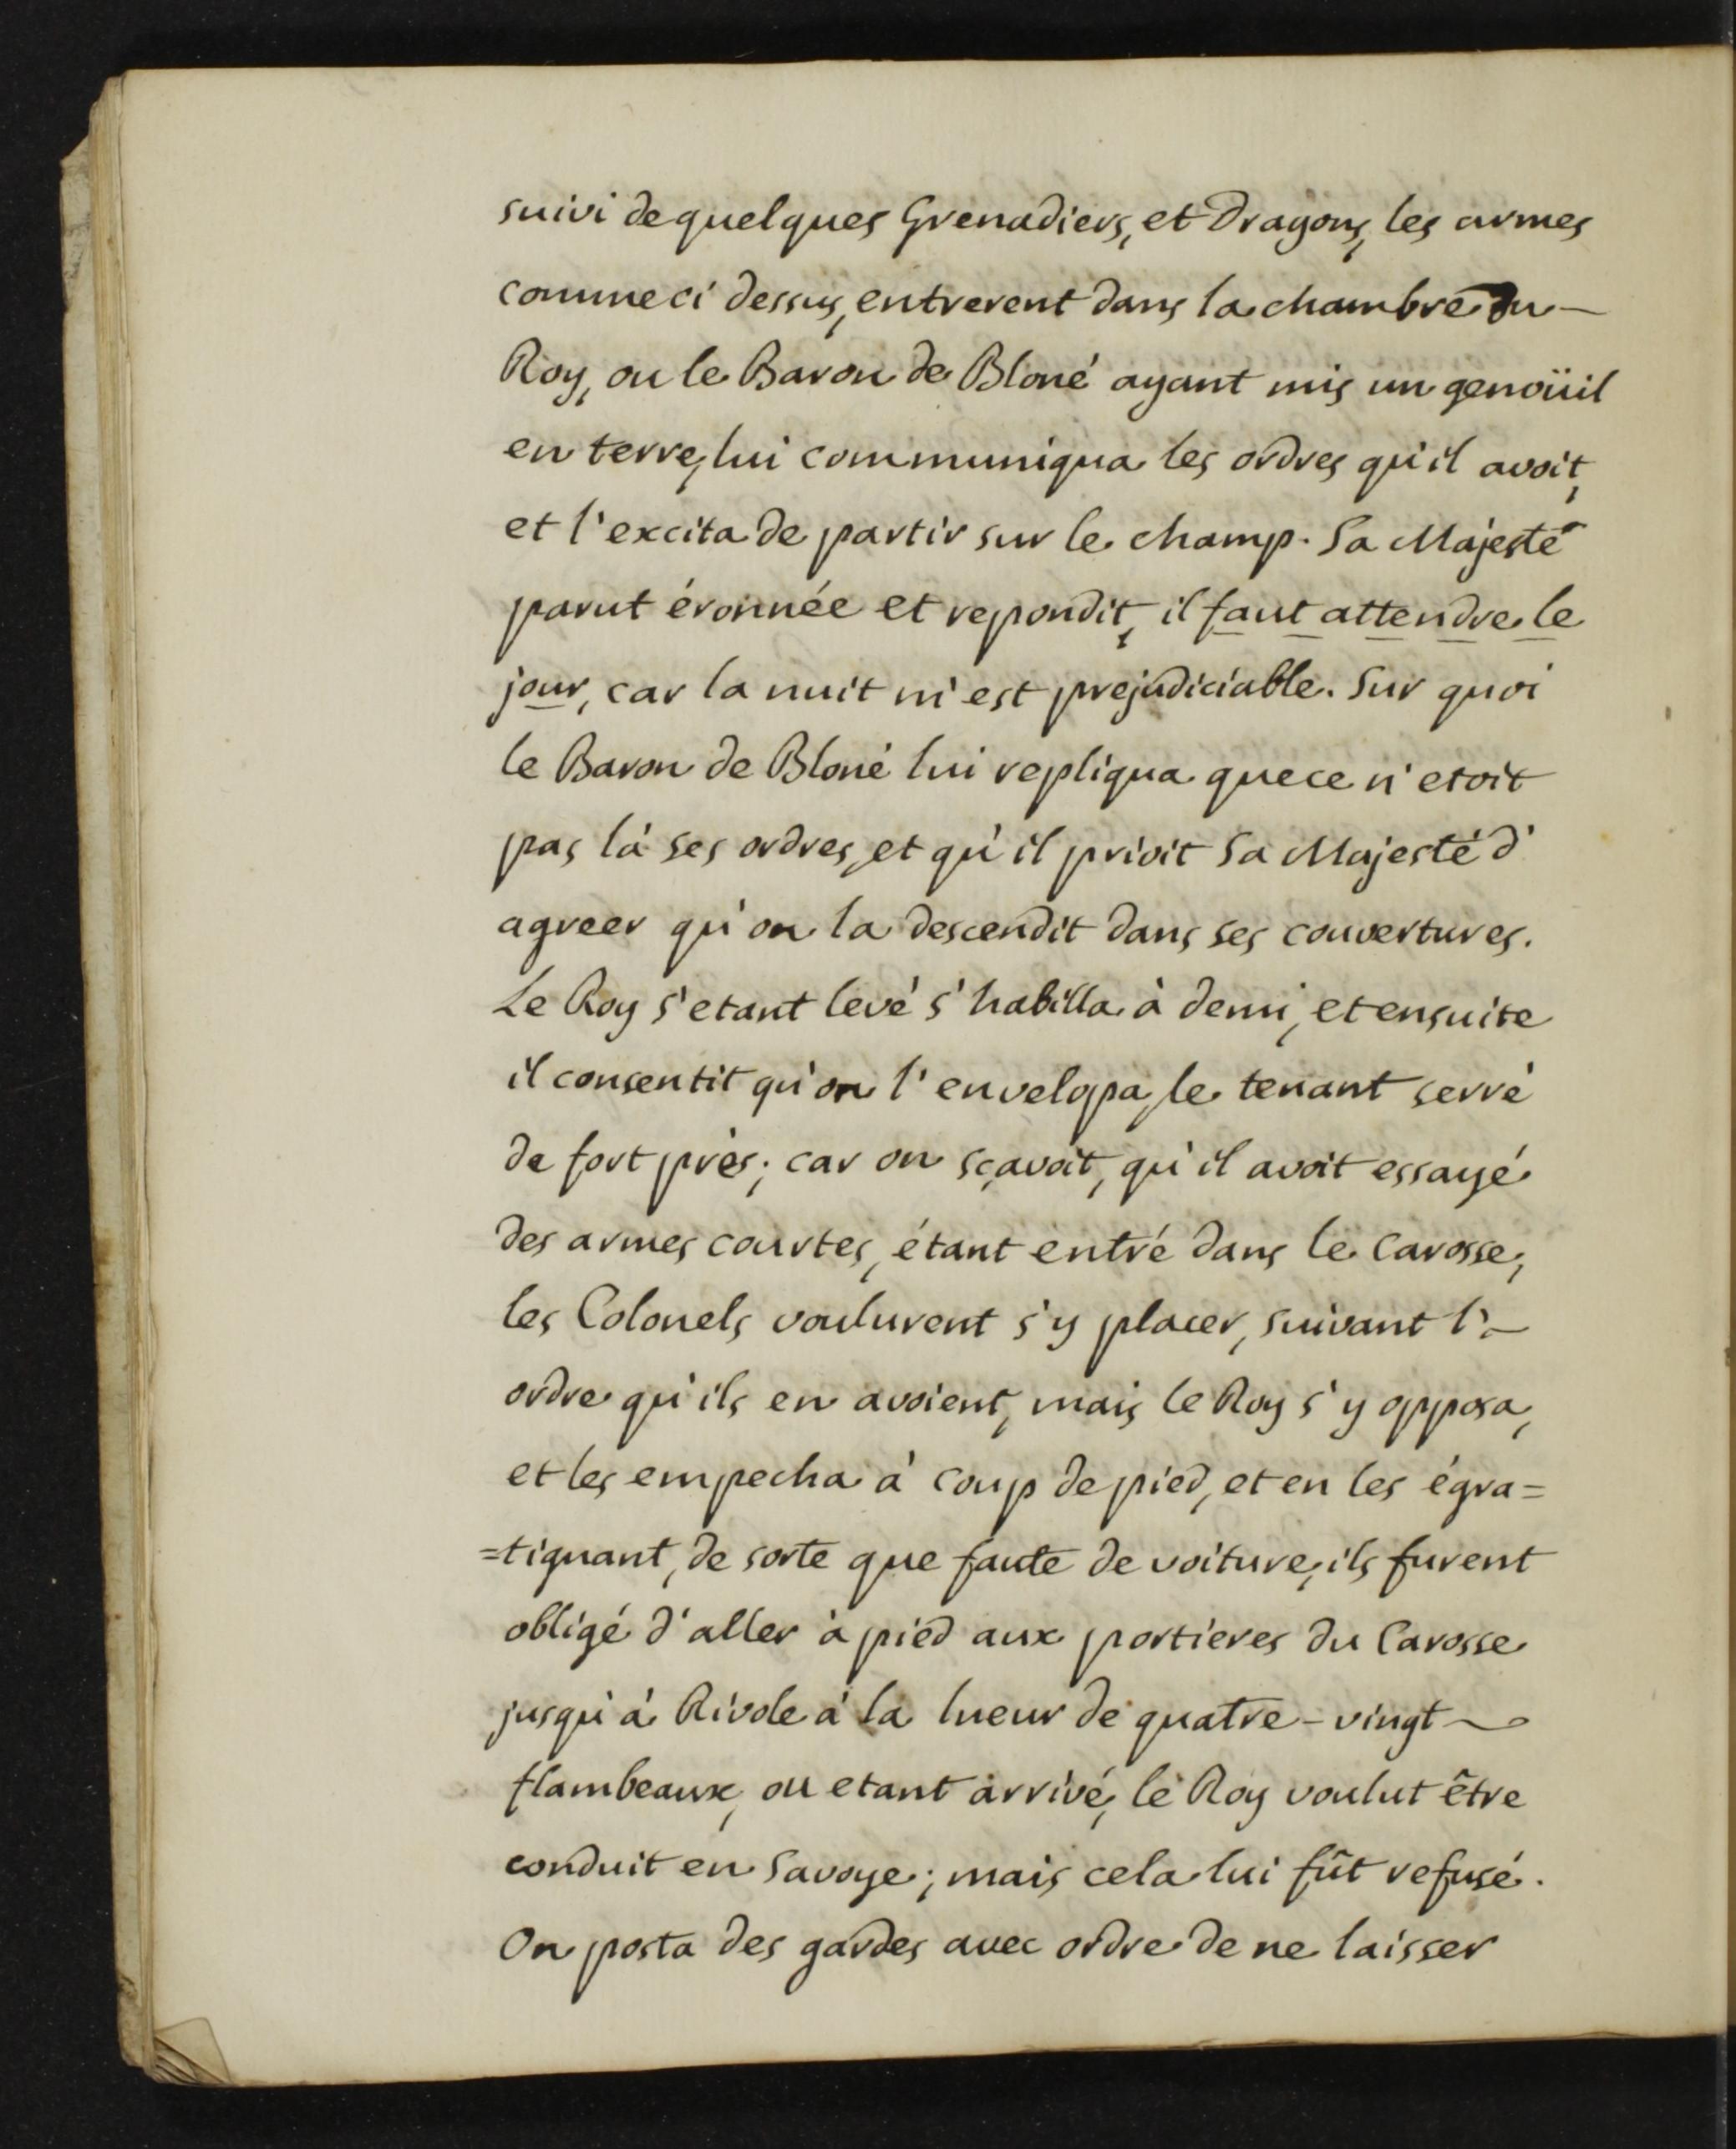 suivi de quelques Grenadiers, et Dragons, les armes
comme ci dessus, entrerent dans la chambre du —
Roy, ou le Baron de Bloné ayant mis un genoüil
en terre, lui communiqua les ordres qu'il avoit,
et l'excita de partir sur le champ. Sa Majesté
parut étonnée et repondit, il faut attendre le
jour, car la nuit m'est prejudiciable. Sur quoi
le Baron de Bloné lui repliqua que ce n'etoit
pas là ses ordres, et qu'il prioit Sa Majesté d'
agreer qu'on la descendit dans ses couvertures.
Le Roy s'etant levé s'habilla à demi, et ensuite
il consentit qu'on l'envelopa, le tenant serré
de fort près; car on sçavoit, qu'il avoit essayé
des armes courtes, étant entré dans le Carosse,
les Colonels voulurent s'y placer, suivant l'—
ordre qu'ils en avoient, mais le Roy s'y opposa,
et les empecha à coup de pied, et en les égra=
=tignant, de sorte que faute de voiture, ils furent
obligé d'aller à pied aux portieres du Carosse
jusqu'à Rivole à la lueur de quatre-vingt —
flambeaux, ou etant arrivé, le Roy voulut être
conduit en Savoye; mais cela lui fût refusé.
On posta des gardes avec ordre de ne laisser